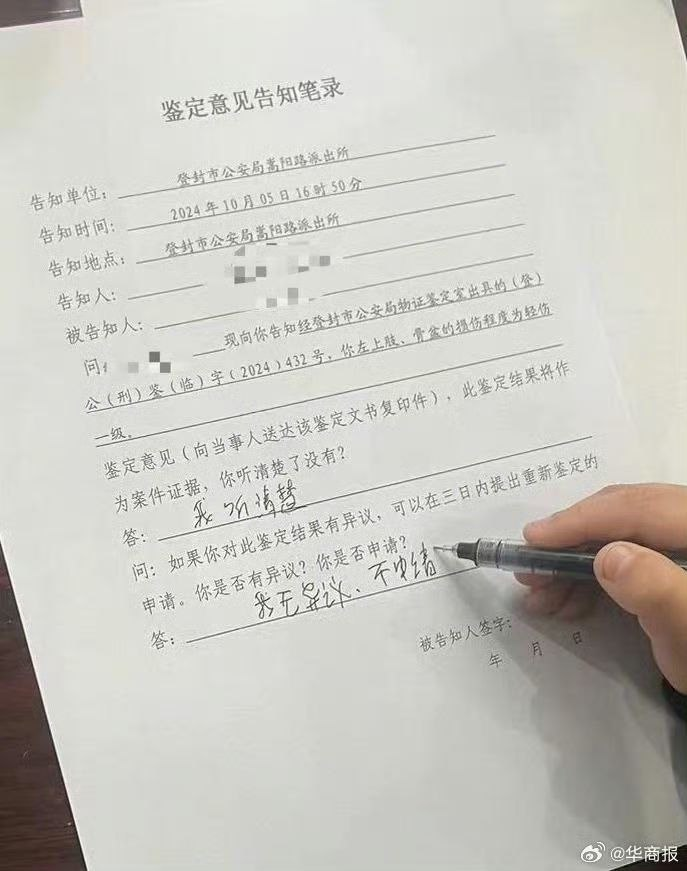 鉴定意见告知笔录
告知单位：登封市公安局嵩阳路派出所
告知时间：2024年10月05日16时50分
告知地点：登封市公安局嵩阳路派出所
告知人：
被告知人：
问：现向你告知经登封市公安局物证鉴定室出具的（登）
公（刑）鉴（临）字（2024）432号，你左上肢、骨盆的损伤程度为轻伤
一级。
鉴定意见（向当事人送达该鉴定文书复印件），此鉴定结果将作
为案件证据，你听清楚了没有？
答：我听清楚
问：如果你对此鉴定结果有异议，可以在三日内提出重新鉴定的
申请。你是否有异议？你是否申请？
答：我无异议、不申请
被告知人签字：
年 月 日
@华商报